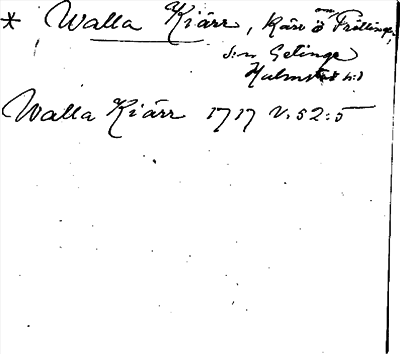 * Walla Kiärr, Kärr ö om Frillinge,
s:n Getinge
Halmstad h:d
Walla Kiärr 1717 V:52:5